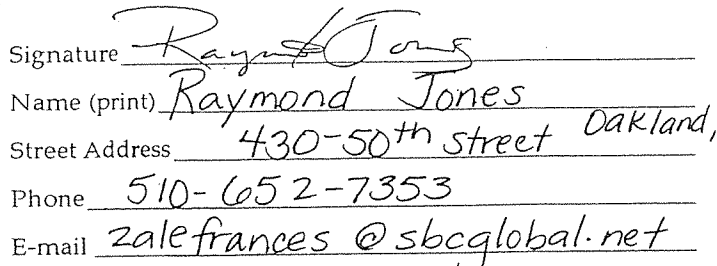 Signature Raymond Jones
Name (print) Raymond Jones
Street Address 430-50th street Oakland,
Phone 510-652-7353
E-mail zalefrances @ sbcglobal.net